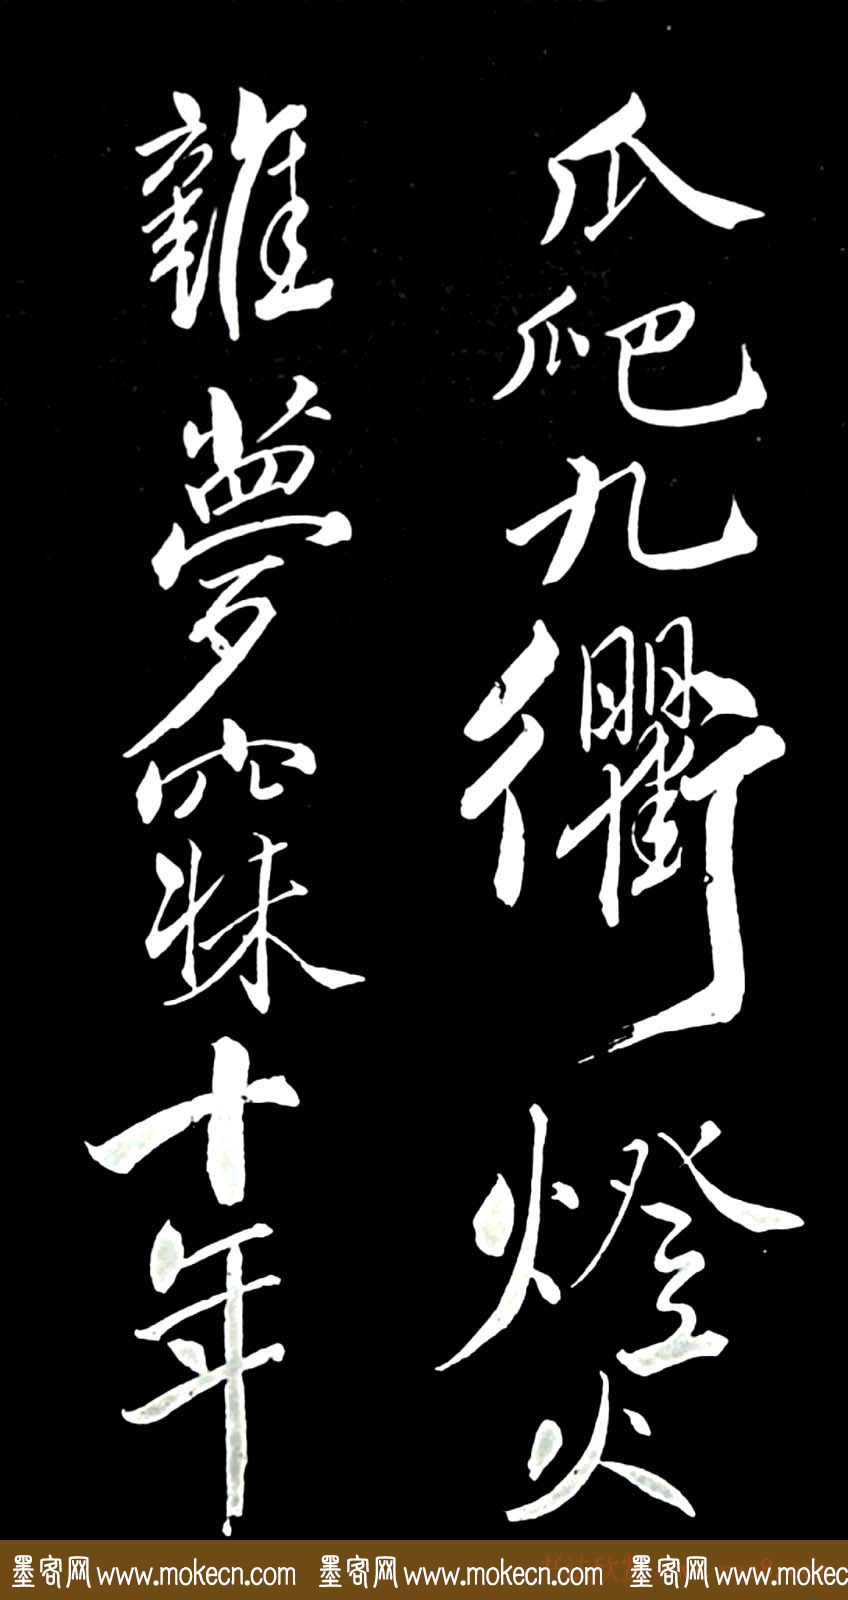 爪爬九衢燈火
雜夢寐十年
墨客网 www.mokecn.com 墨客网 www.mokecn.com 墨客网 www.mokecn.com